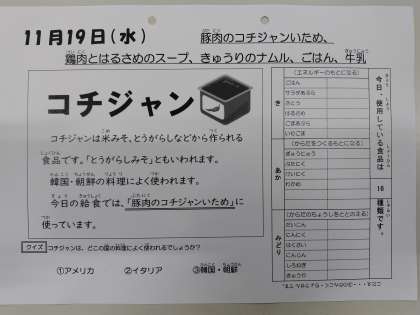 11月19日(水)
豚肉のコチジャンいため、
鶏肉とはるさめのスープ、きゅうりのナムル、ごはん、牛乳
コチジャン
コチジャンは米みそ、とうがらしなどから作られる
食品です。「とうがらしみそ」ともいわれます。
韓国・朝鮮の料理によく使われます。
今日の給食では、「豚肉のコチジャンいため」に
使っています。
クイズ コチジャンは、どこの国の料理によく使われるでしょうか？
①アメリカ ②イタリア ③韓国・朝鮮
今日、使用している食品は
16
種類です。
き
(エネルギーのもとになる)
ごはん
サラダあぶら
さとう
はるさめ
ごまあぶら
いりごま
あか
(からだをつくるもとになる)
ぎゅうにゅう
ぶたにく
とりにく
わかめ
みどり
(からだのちょうしをととのえる)
だいこん
にんにく
はくさい
にんじん
しろねぎ
きゅうり